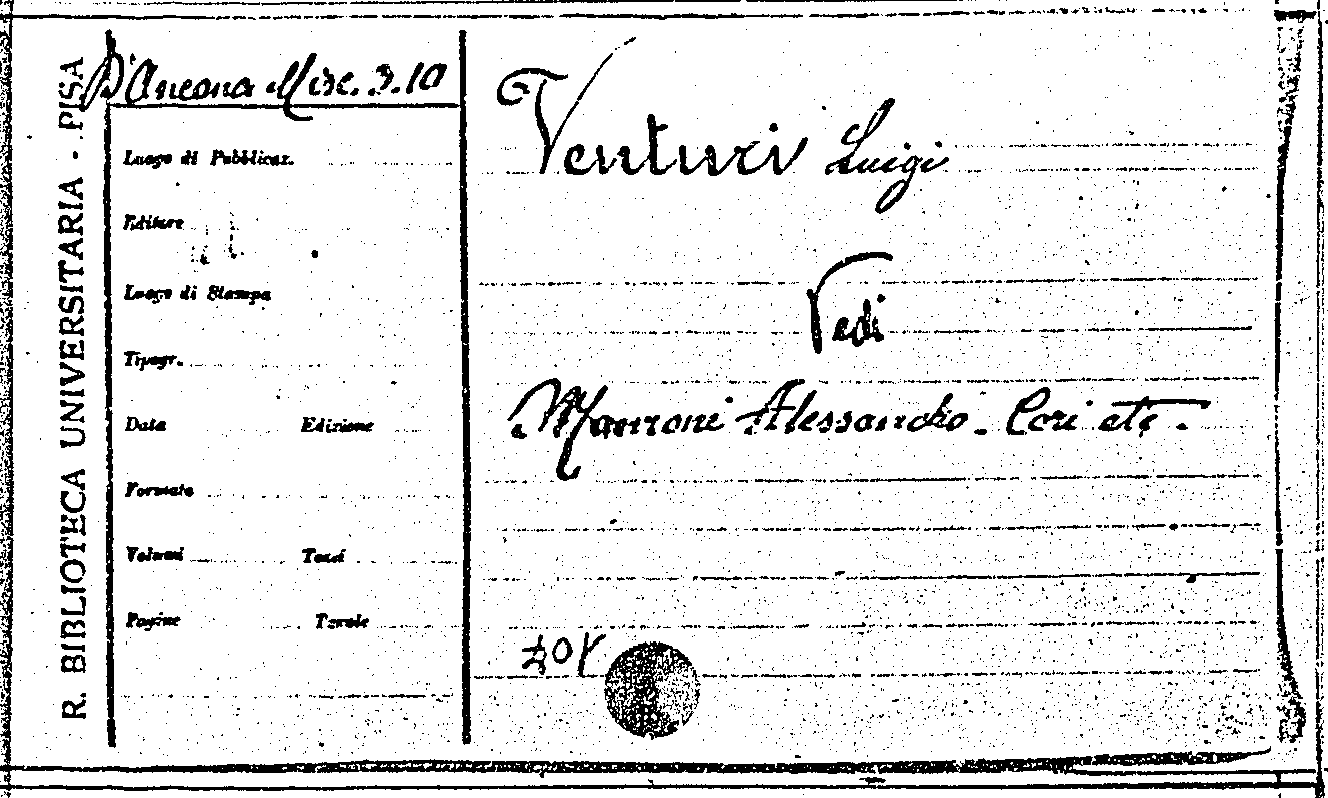 R. BIBLIOTECA UNIVERSITARIA - PISA
D'Ancona Misc. 3.10
Luogo di Pubblicaz.
Editore
Luogo di Stampa
Tipogr.
Data Edizione
Formato
Volumi Tomi
Pagine Tavole
Venturi Luigi
Vedi
Manzoni Alessandro. Cori etc.